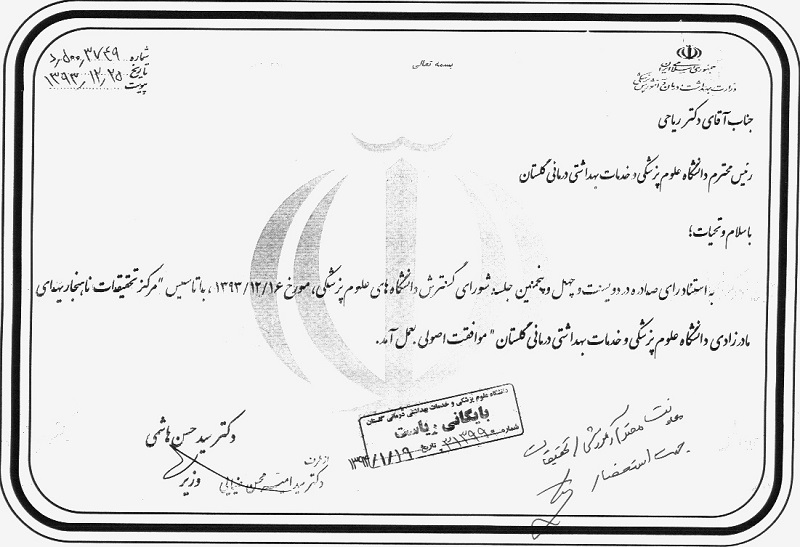 بسمه تعالی
جمهوری اسلامی ایران
وزارت بهداشت، درمان و آموزش پزشکی
شماره ۵۰۰٫۳۷۴۹٫د
تاریخ ۱۳۹۳٫۱۲٫۲۵
پیوست
جناب آقای دکتر ریاحی
رئیس محترم دانشگاه علوم پزشکی و خدمات بهداشتی درمانی گلستان
با سلام و تحیات؛
به استناد رای صادره در دویست و چهل و پنجمین جلسه شورای گسترش دانشگاه های علوم پزشکی، مورخ ۱۳۹۳/۱۲/۱۶، با تاسیس "مرکز تحقیقات ناهنجاریهای
مادرزادی دانشگاه علوم پزشکی و خدمات بهداشتی درمانی گلستان" موافقت اصولی بعمل آمد.
دکتر سید حسن هاشمی
وزیر
از طرف
دکتر سید امیر محسن ضیایی
دانشگاه علوم پزشکی و خدمات بهداشتی درمانی گلستان
بایگانی ریاست
شماره ۳۱۳۹۹
تاریخ ۱۳۹۴/۱/۱۹
معاونت محترم آموزشی / تحقیقات
جهت استحضار